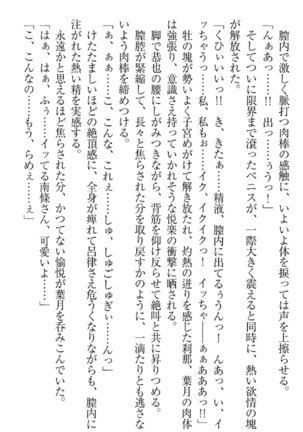 膣内で激しく脈打つ肉棒の感触に、いよいよ体を捩っては声を上擦らせ、
「んぁあっ……！！　出っ……ぅうっ！」
そしてついに限界まで滾ったペニスが、一際大きく震えると同時に、熱い欲情の塊
が解放された。
「くひぃいいっ！！　き、きたぁ……精液、膣内に出てるぅうんっ！　んあっ、い、イ
ッちゃうっ……私、私もぉ……イク、イクイクっ！　イッちゃ――ぁぁあああっ！！」
牡の塊が勢いよく子宮めがけて解き放たれ、灼熱の迸りを感じた刹那、葉月の肉体
は強張り、意識さえ持っていかれそうな悦楽の衝撃に晒される。
脚で恭也の腰にしがみつきながら、背筋を仰け反らせて絶叫と共に昇りつめる。
膣腔が緊縮して、長々と焦らされた分を取り戻すかのように、一滴たりとも逃さな
いよう肉棒を締めつける。
「ぁ、ぁぁ……こ、こんな、これぇ……しゅ、しゅごしゅぎぃ……んっ」
けたたましいほどの絶頂感に、全身が痺れて呂律さえ危うくなりながらも、膣内に
注がれた熱い精を実感する。
永遠かと思えるほど焦らされた分、かつてない愉悦が葉月を呑みこんでいた。
「はぁ、はぁ、ふぅ……イッてる南條さん、可愛いよ」
「こ、こんなの……もう、らめぇ……ぇ」